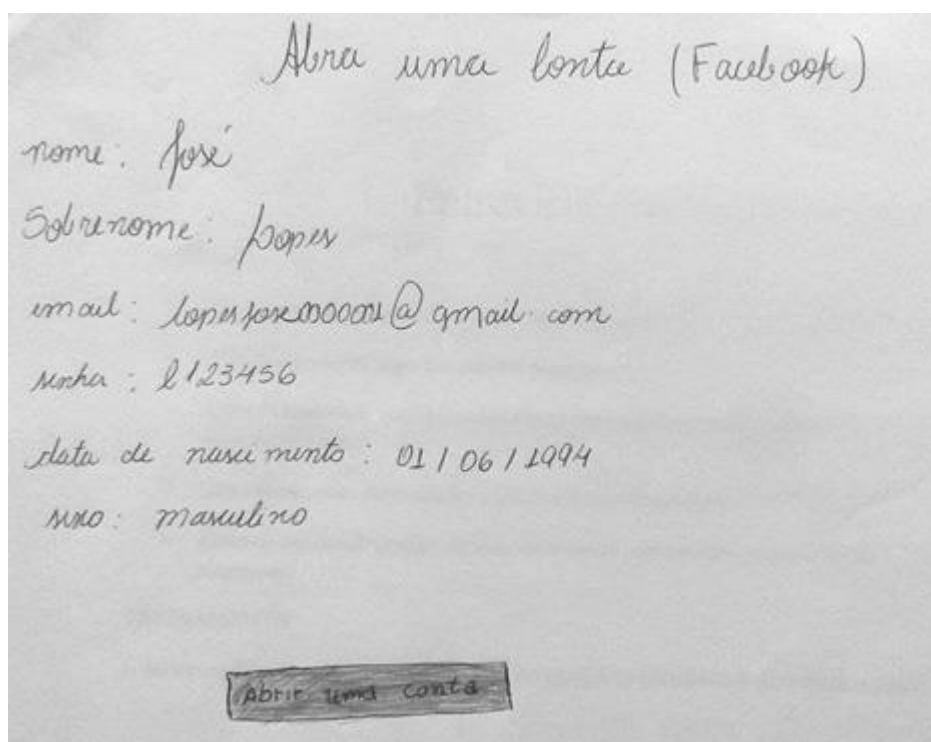 Abra uma Conta (Facebook)
nome: José
Sobrenome: Lopes
email: @gmail.com
senha: l123456
data de nascimento: 01/06/1994
sexo: masculino
Abrir uma conta